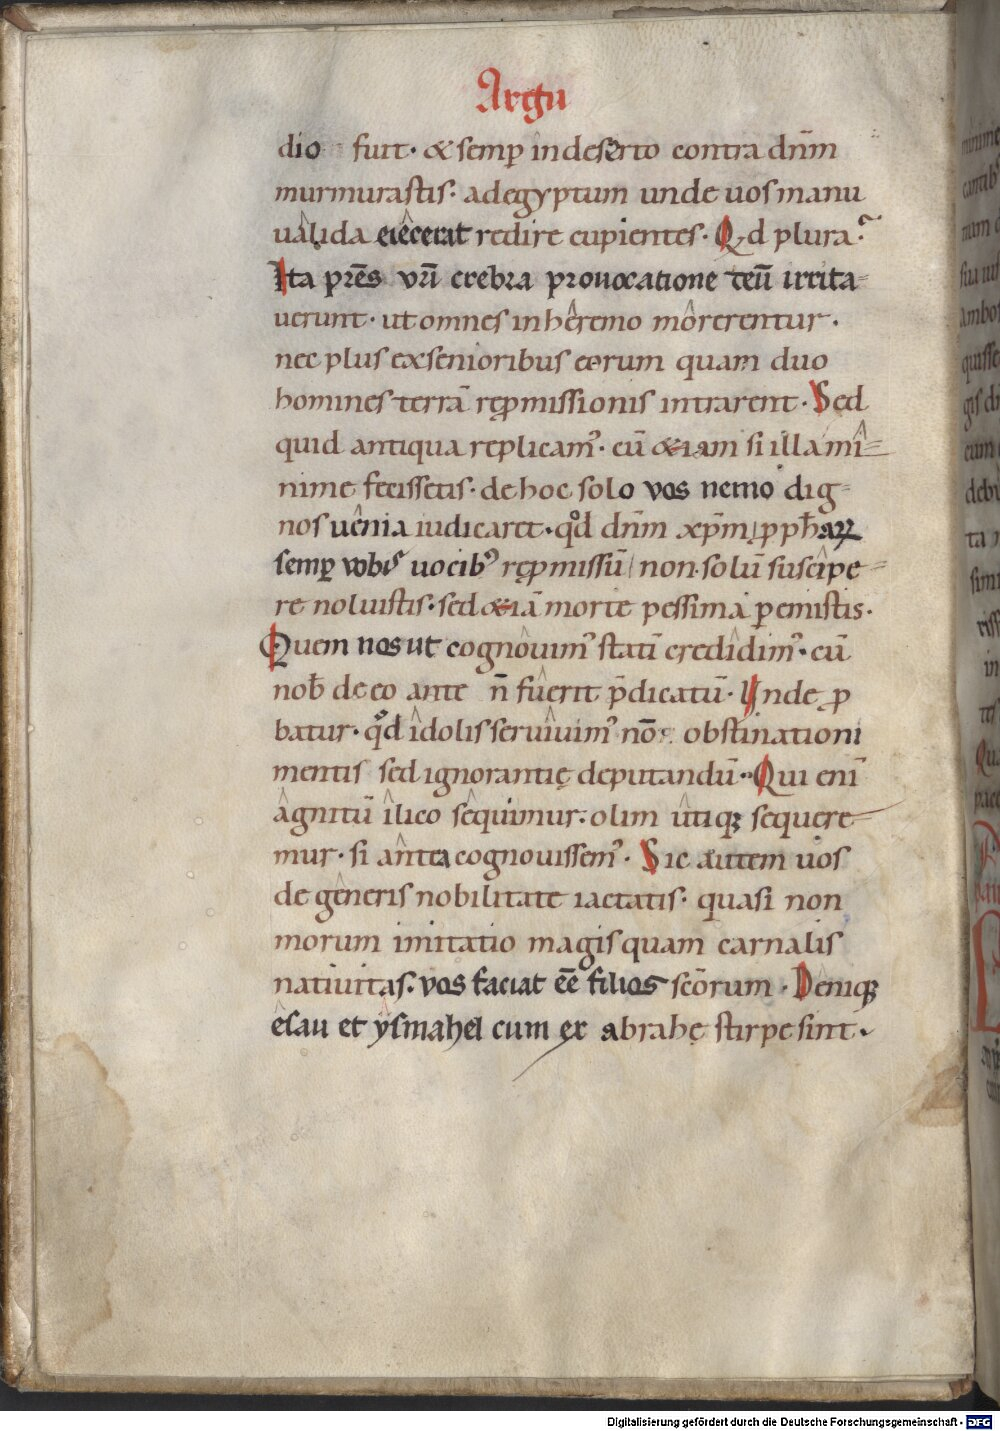 Argu
dio fuit · & semp̱ in deserto contra dn̄m
murmurastis · ad egyptum unde uos manu
ualida eiecerat redire cupientes · Qd plura ·
Ita pr̄es vr̄i crebra prouocatione teū irrita-
uerunt · ut omnes in heremo morerentur ·
nec plus ex senioribus eorum quam duo
homines terrā rep̱missionis intrarent · Sed
quid antiqua replicam᾿ · cū &iam si illa mi-
nime fecissetis · de hoc solo vos nemo dig-
nos uenia iudicaret · qd dn̄m xp̄m p̱ph̄arꝝ
semp̱ vobis uocib᾿ rep̱missū non solū suscipe-
re noluistis · sed &iā morte pessima p̱emistis ·
Quem nos ut cognouim᾿ statī credidim᾿ · cū
nob̄ de eo ante n̄ fuerit p̄dicatū · Unde p̱
batur · qd idolis seruiuim᾿ nō obstinationi
mentis sed ignorantię deputandū · Qui enī
agnitū ilico sequimur · olim utiqꝫ sequere-
mur · si antea cognouissem᾿ · Sic autem uos
de generis nobilitate iactatis · quasi non
morum imitatio magis quam carnalis
natiuitas · vos faciat eē filios scōrum · Deniqꝫ
esau et ysmahel cum ex abrahę stirpe sint ·
Digitalisierung gefördert durch die Deutsche Forschungsgemeinschaft - DFG